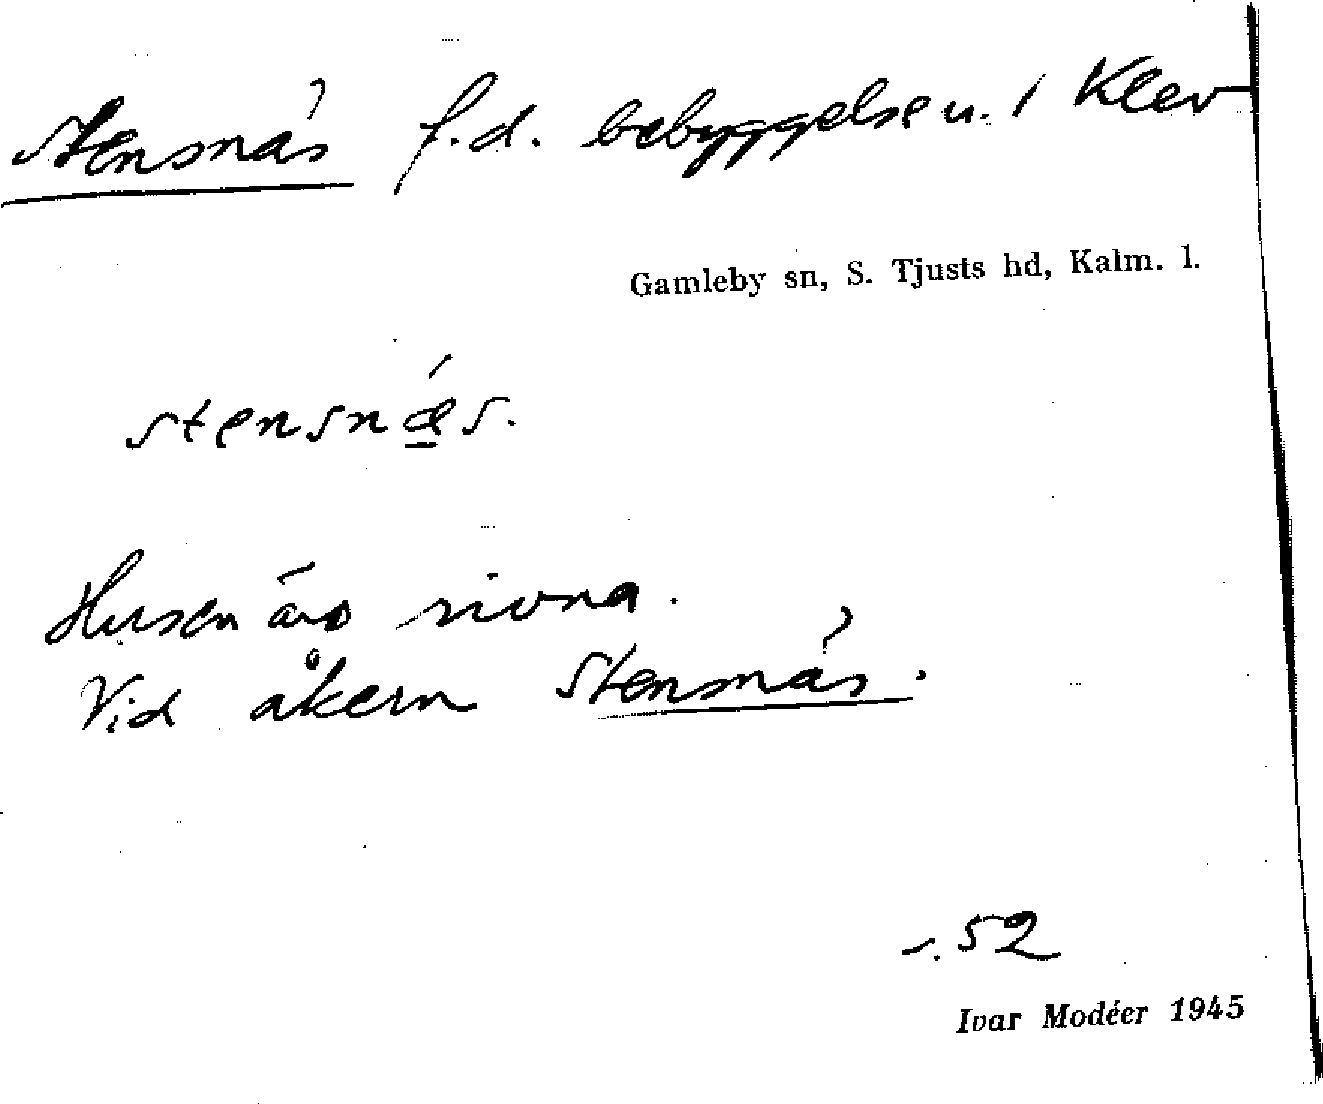 Stensnäs f.d. bebyggelse u. i Klev
Gamleby sn, S. Tjusts hd, Kalm. l.
stensnǽ̲s.
Husen äro rivna.
Vid åkern Stensnäs.
52
Ivar Modéer 1945